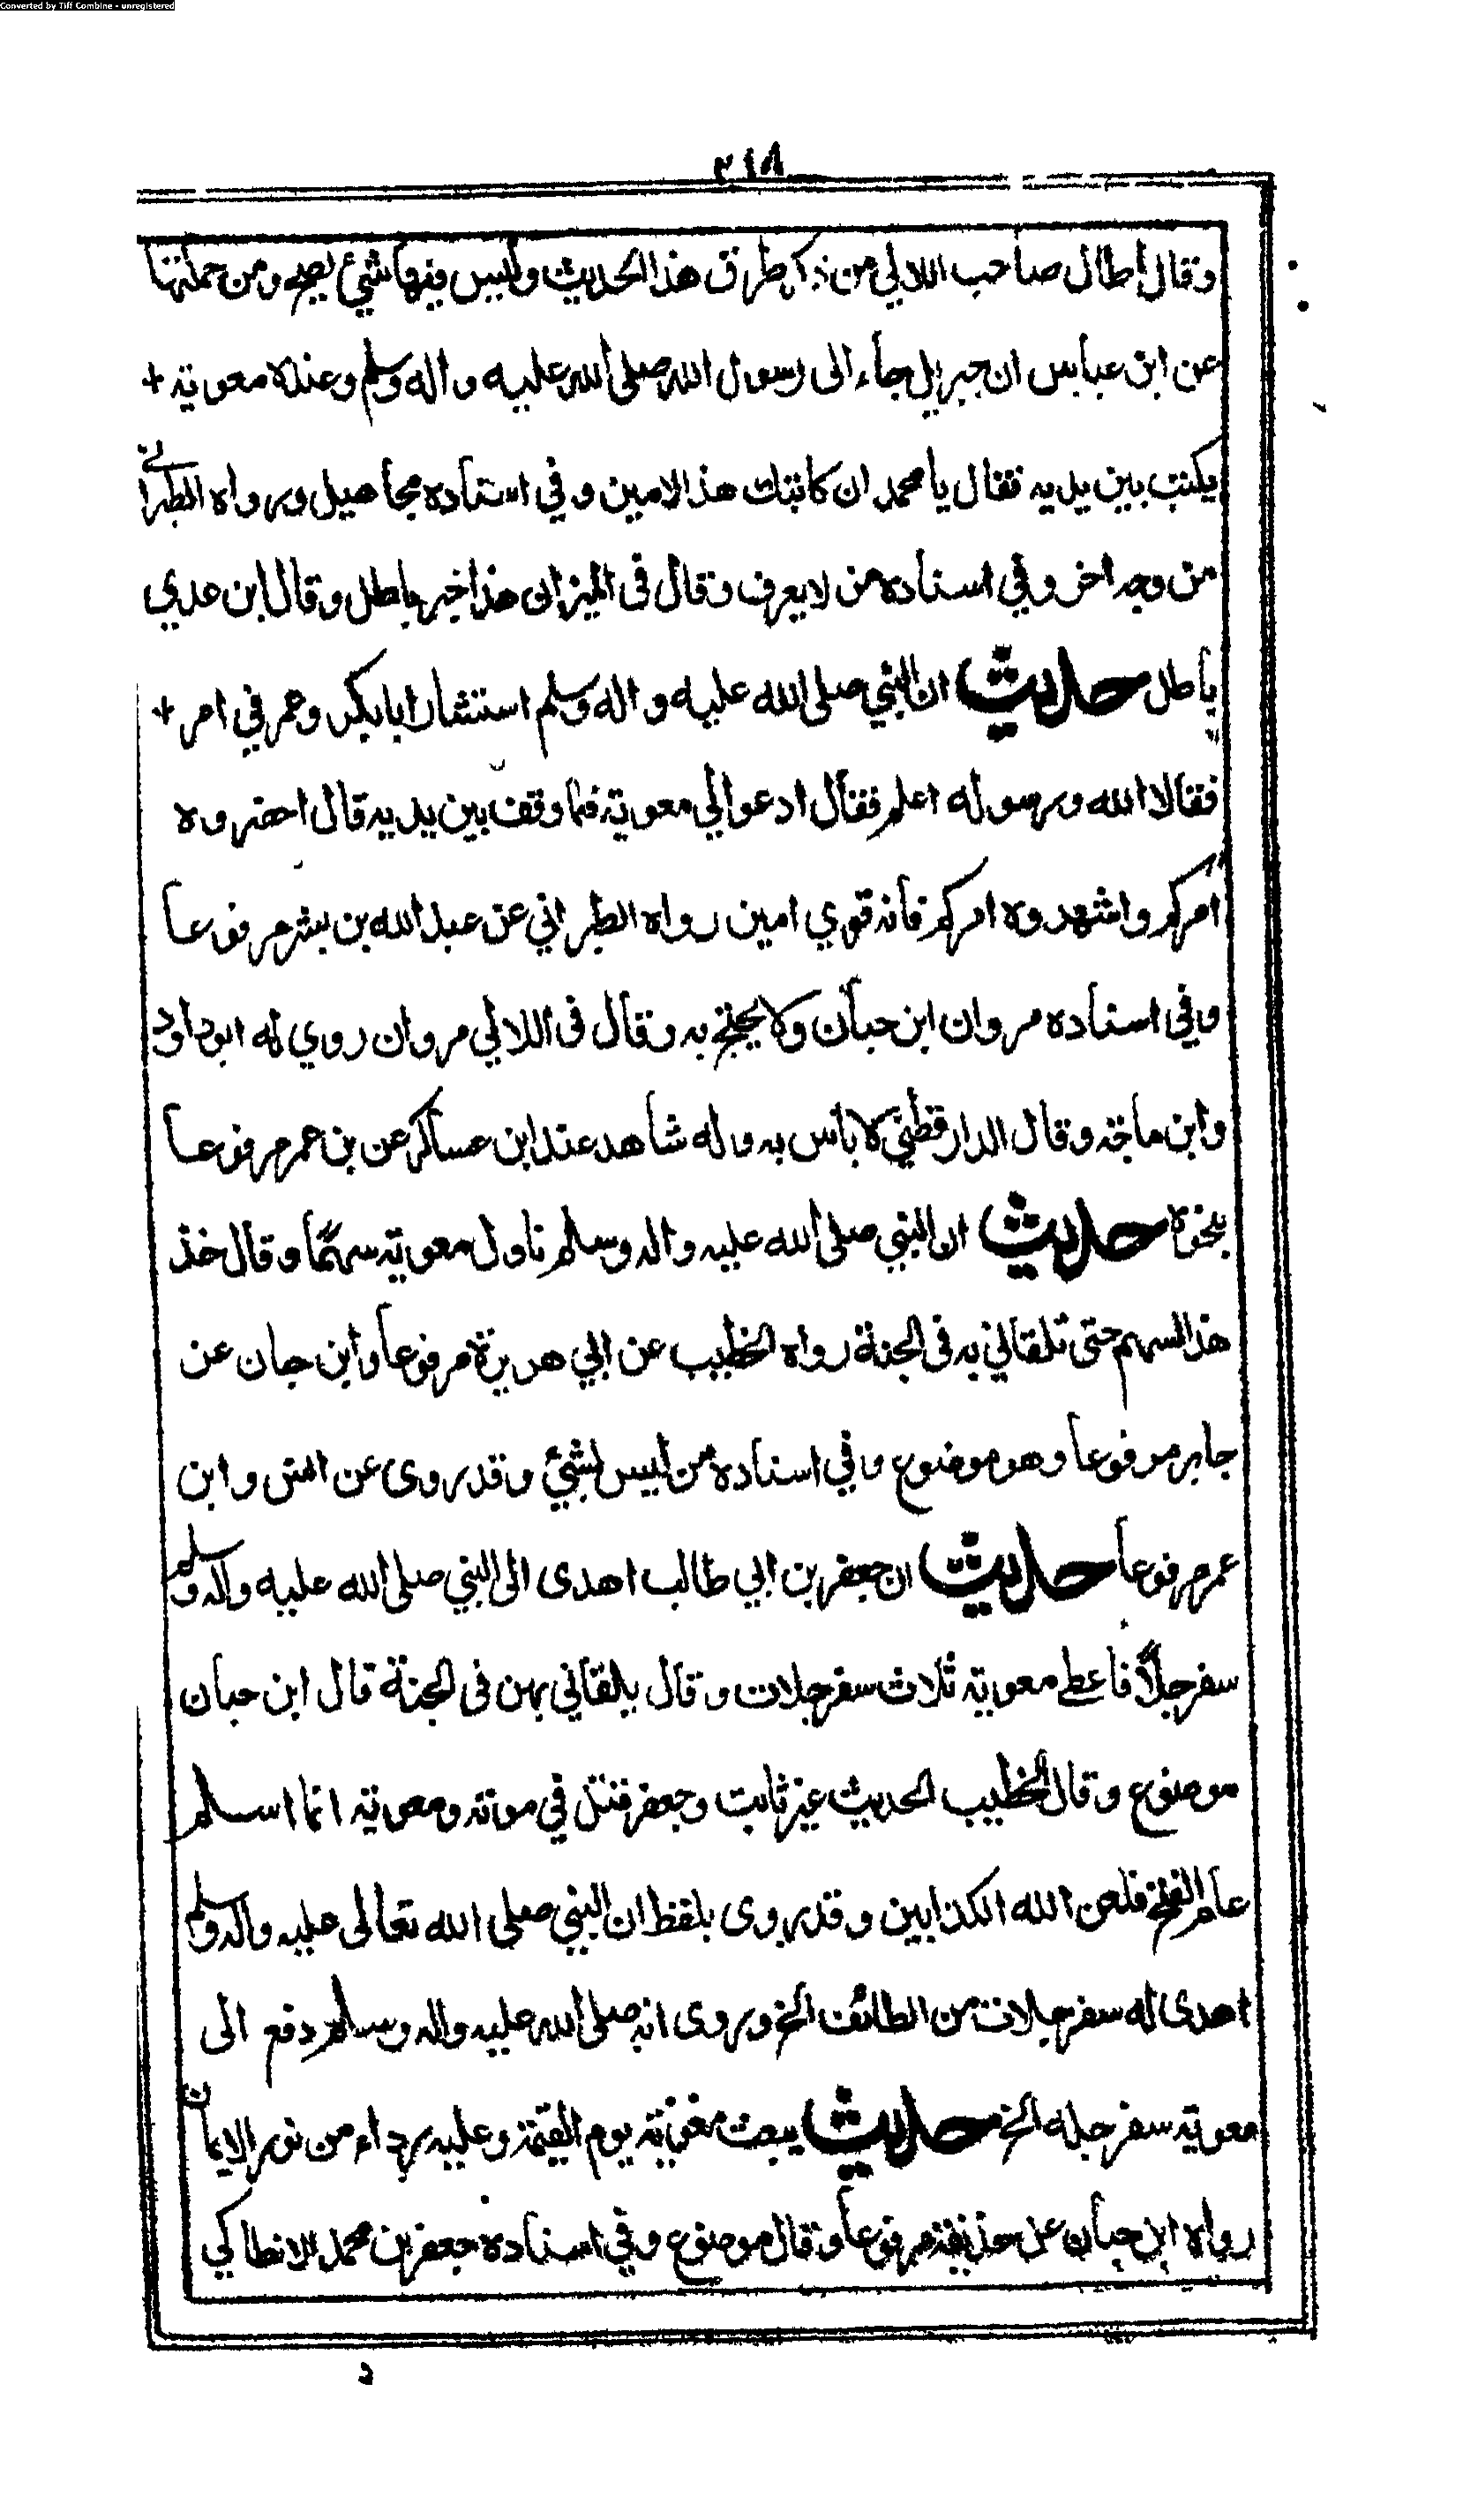 Converted by Tiff Combine - unregistered
٢١٨
وقال اطال صاحب اللالي من ذكر طرق هذا الحديث وليس فيها شيء يصح ومن جملتها
عن ابن عباس ان جبريل جاء الى رسول الله صلى الله عليه واله وسلم وعنده معوية +
يكتب بين يديه فقال يا محمد ان كاتبك هذا لامين وفي اسناده مجاهيل ورواه الطبراني
من وجه اخر وفي اسناده من لا يعرف وقال في الميزان هذا خبر باطل وقال ابن عدي
باطل حديث ان النبي صلى الله عليه واله وسلم استشار ابا بكر وعمر في امر +
فقالا الله ورسوله اعلم فقال ادعوا لي معوية فلما وقف بين يديه قال احضروه
امركم واشهدوه امركم فانه قوي امين رواه الطبراني عن عبد الله بن بشر مرفوعا
وفي اسناده مروان ابن حبان ولا يحتج به وقال في اللالي مروان روي له ابو داود
وابن ماجة وقال الدارقطني لا باس به وله شاهد عند ابن عساكر عن بن عمر مرفوعا
بنحوه حديث ان النبي صلى الله عليه واله وسلم ناول معوية سهمًا وقال خذ
هذا السهم حتى تلقاني به في الجنة رواه الخطيب عن ابي هريرة مرفوعا وابن حبان عن
جابر مرفوعا وهو موضوع وفي اسناده من ليس بشيء وقد روى عن انس وابن
عمر مرفوعا حديث ان جعفر بن ابي طالب اهدى الى النبي صلى الله عليه واله وسلم
سفرجلاً فاعطى معوية ثلاث سفرجلات وقال يلقاني بهن في الجنة قال ابن حبان
موضوع وقال الخطيب الحديث غير ثابت وجعفر قتل في موته ومعوية انما اسلم
عام الفتح فلعن الله الكذابين وقد روى بلفظ ان النبي صلى الله تعالى عليه واله وسلم
اهدى له سفرجلات من الطائف الخ وروى انه صلى الله عليه واله وسلم دفع الى
معوية سفرجله الخ حديث يبعث معوية يوم القيمة وعليه رداء من نور الايمان
رواه ابن حبان عن حذيفة مرفوعا وقال موضوع وفي اسناده جعفر بن محمد الانطاكي